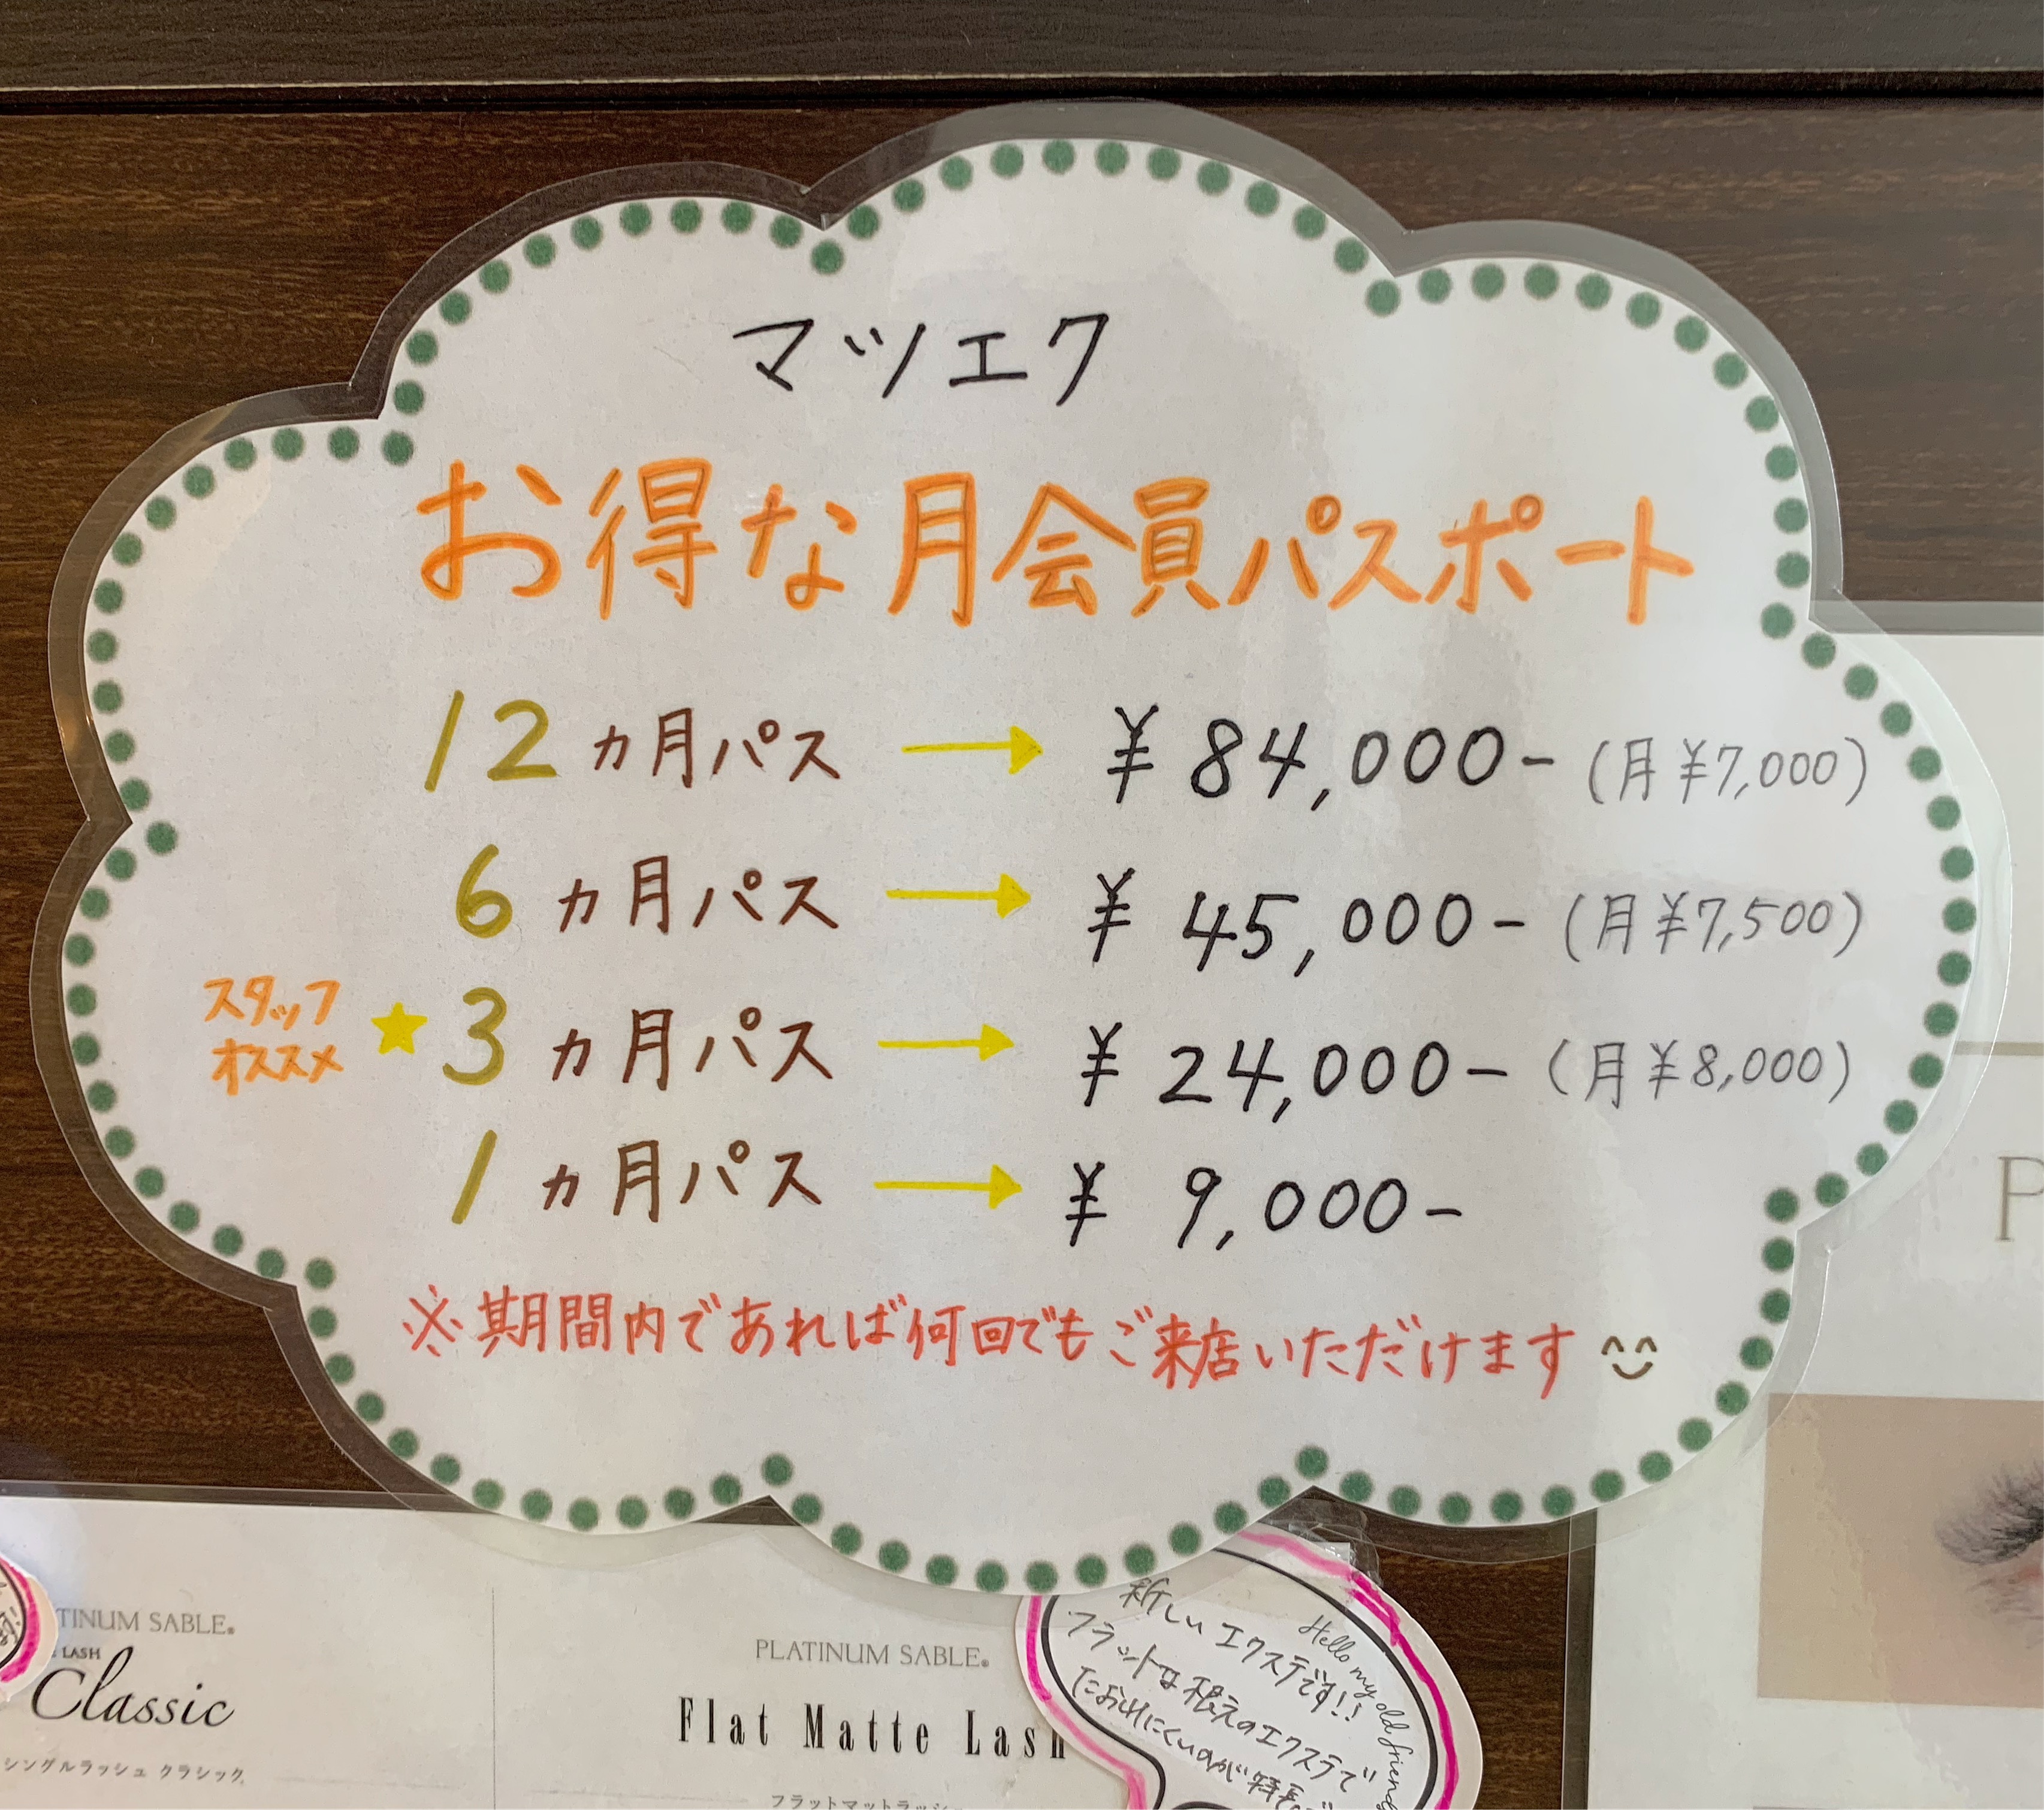 マツエク
お得な月会員パスポート
12ヵ月パス → ¥84,000- (月¥7,000)
6ヵ月パス → ¥45,000- (月¥7,500)
スタッフ
オススメ
★3ヵ月パス → ¥24,000- (月¥8,000)
1ヵ月パス → ¥9,000-
※期間内であれば何回でもご来店いただけます
P
TINUM SABLE®
LASH
Classic
シングルラッシュ クラシック
PLATINUM SABLE®
Flat Matte Lash
フラットマットラッシ
Hello my old friend
新しいエクステです!!
フラットは
エクステで